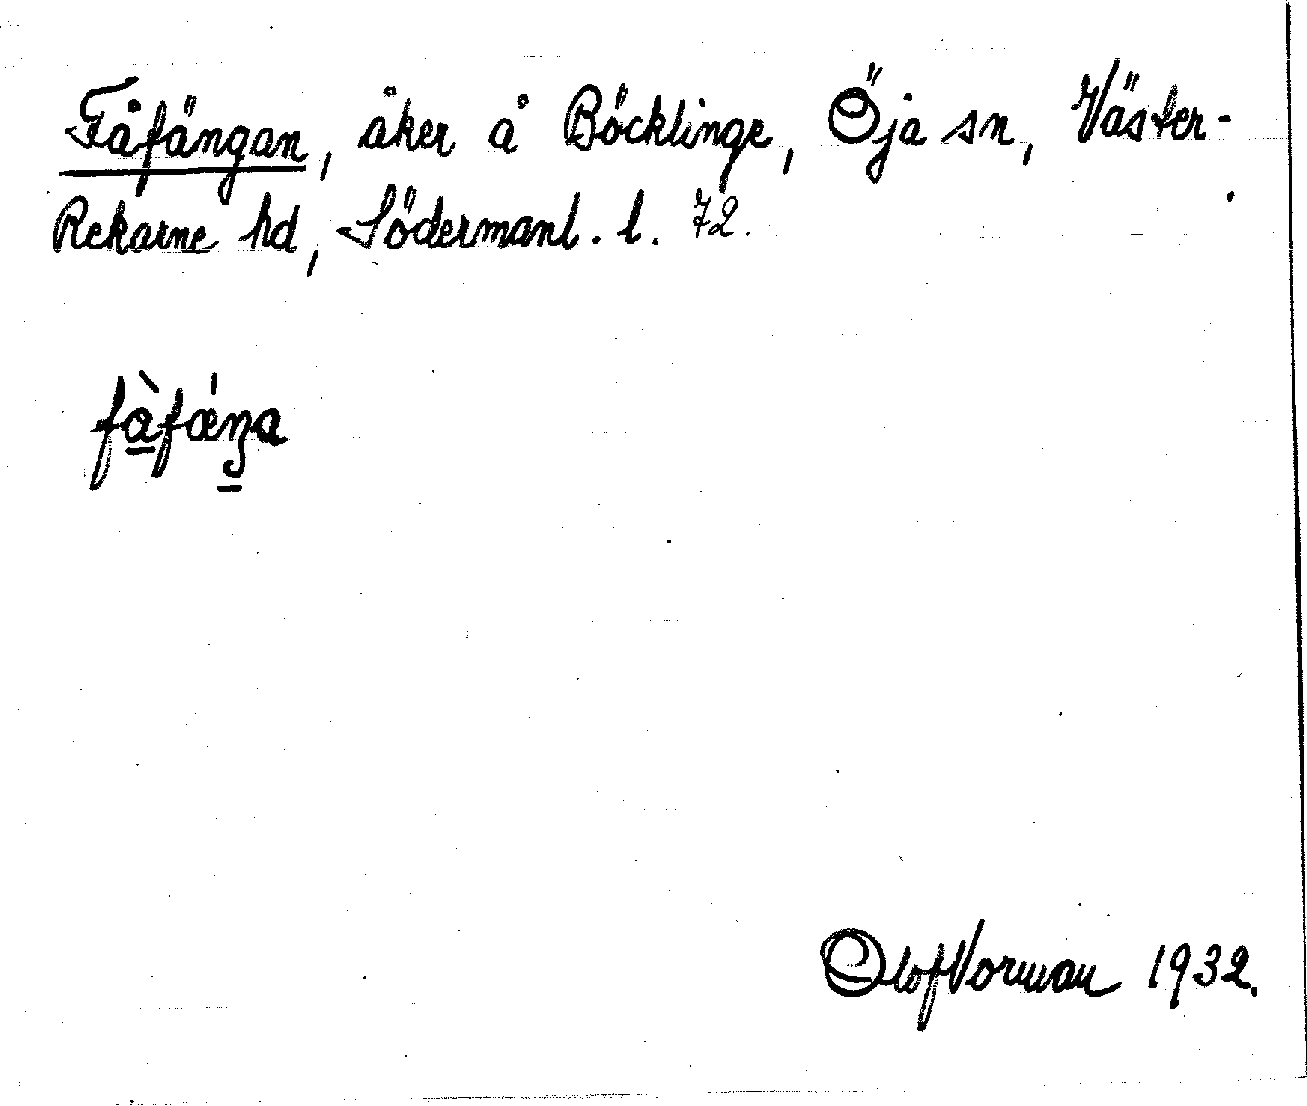 Fåfängan, åker å Böcklinge, Öja sn, Väster-
Rekarne hd, Södermanl. l. 72.
fàfǽŋa
Olof Vorman 1932.